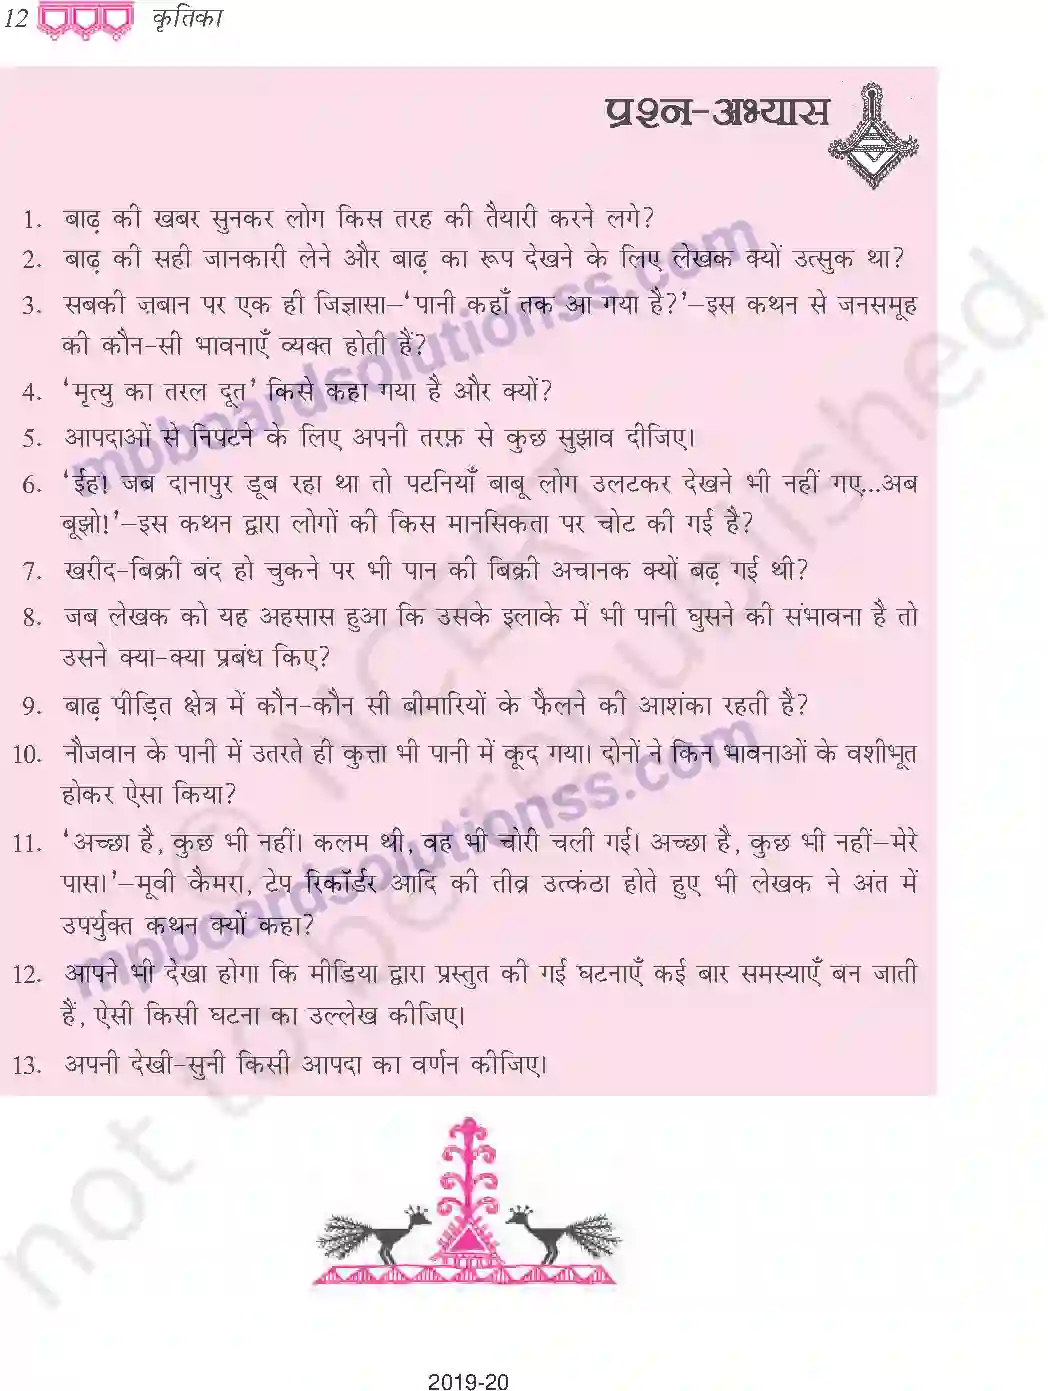 12 कृतिका
प्रश्न-अभ्यास
1. बाढ़ की खबर सुनकर लोग किस तरह की तैयारी करने लगे?
2. बाढ़ की सही जानकारी लेने और बाढ़ का रूप देखने के लिए लेखक क्यों उत्सुक था?
3. सबकी ज़बान पर एक ही जिज्ञासा–‘पानी कहाँ तक आ गया है?’–इस कथन से जनसमूह
की कौन-सी भावनाएँ व्यक्त होती हैं?
4. ‘मृत्यु का तरल दूत’ किसे कहा गया है और क्यों?
5. आपदाओं से निपटने के लिए अपनी तरफ़ से कुछ सुझाव दीजिए।
6. ‘ईह! जब दानापुर डूब रहा था तो पटनियाँ बाबू लोग उलटकर देखने भी नहीं गए...अब
बूझो!’–इस कथन द्वारा लोगों की किस मानसिकता पर चोट की गई है?
7. खरीद-बिक्री बंद हो चुकने पर भी पान की बिक्री अचानक क्यों बढ़ गई थी?
8. जब लेखक को यह अहसास हुआ कि उसके इलाके में भी पानी घुसने की संभावना है तो
उसने क्या-क्या प्रबंध किए?
9. बाढ़ पीड़ित क्षेत्र में कौन-कौन सी बीमारियों के फैलने की आशंका रहती है?
10. नौजवान के पानी में उतरते ही कुत्ता भी पानी में कूद गया। दोनों ने किन भावनाओं के वशीभूत
होकर ऐसा किया?
11. ‘अच्छा है, कुछ भी नहीं। कलम थी, वह भी चोरी चली गई। अच्छा है, कुछ भी नहीं–मेरे
पास।’–मूवी कैमरा, टेप रिकॉर्डर आदि की तीव्र उत्कंठा होते हुए भी लेखक ने अंत में
उपर्युक्त कथन क्यों कहा?
12. आपने भी देखा होगा कि मीडिया द्वारा प्रस्तुत की गई घटनाएँ कई बार समस्याएँ बन जाती
हैं, ऐसी किसी घटना का उल्लेख कीजिए।
13. अपनी देखी-सुनी किसी आपदा का वर्णन कीजिए।
mpboardsolutionss.com
mpboardsolutionss.com
© NCERT
not to be republished
2019-20